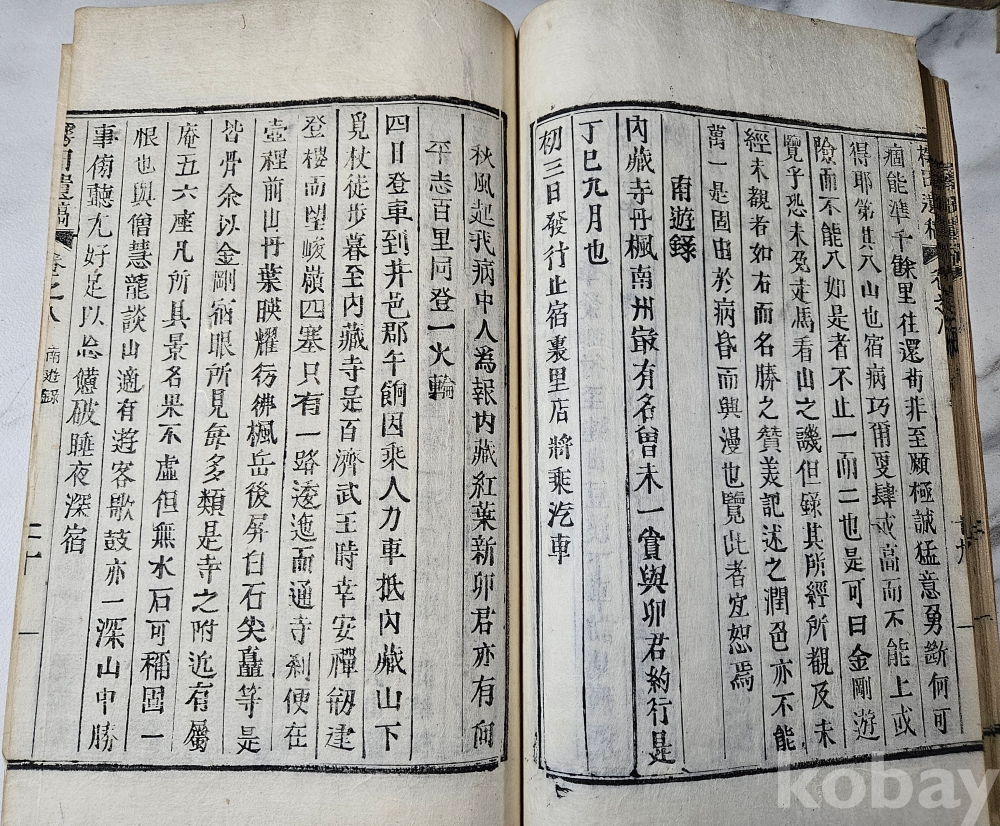 痼能準千餘里往還耶非至願極誠猛意勇斷何可
得耶第其入山也宿病巧爾更肆或高而不能上或
險而不能入如是者不止一而二也是可曰金剛遊
覽乎恐未免走馬看山之譏但錄其所經所觀及未
經未觀者如右而名勝之贊美記述之潤色亦不能
萬一是固由於病昏而與漫也覽此者宜恕焉
南遊錄
內藏寺丹楓南州最有名曾未一賞與卯君約行是
丁巳九月也
初三日發行止宿裏里店將乘汽車
秋風起我病中人為報內藏紅葉新卯君亦有向
平志百里同登一火輪
四日登車到井邑郡午餉因乘人力車抵內藏山下
覓杖徒步暮至內藏寺是百濟武王時幸安禪師建
登樓而望峻嶺四塞只有一路逶迤而通寺刹便在
壺裡前山丹葉暎耀彷彿楓岳後屏白石尖矗等是
皆骨余以金剛宿眼所見每多類是寺之附近有屬
庵五六座凡所具景名果不虛但無水石可稱啚一
恨也與僧慧龍談山適有遊客歌鼓亦一深山中勝
事俯聽尤好足以忘憊破睡夜深宿
遺稿
卷之八
南遊錄
二十
kobay